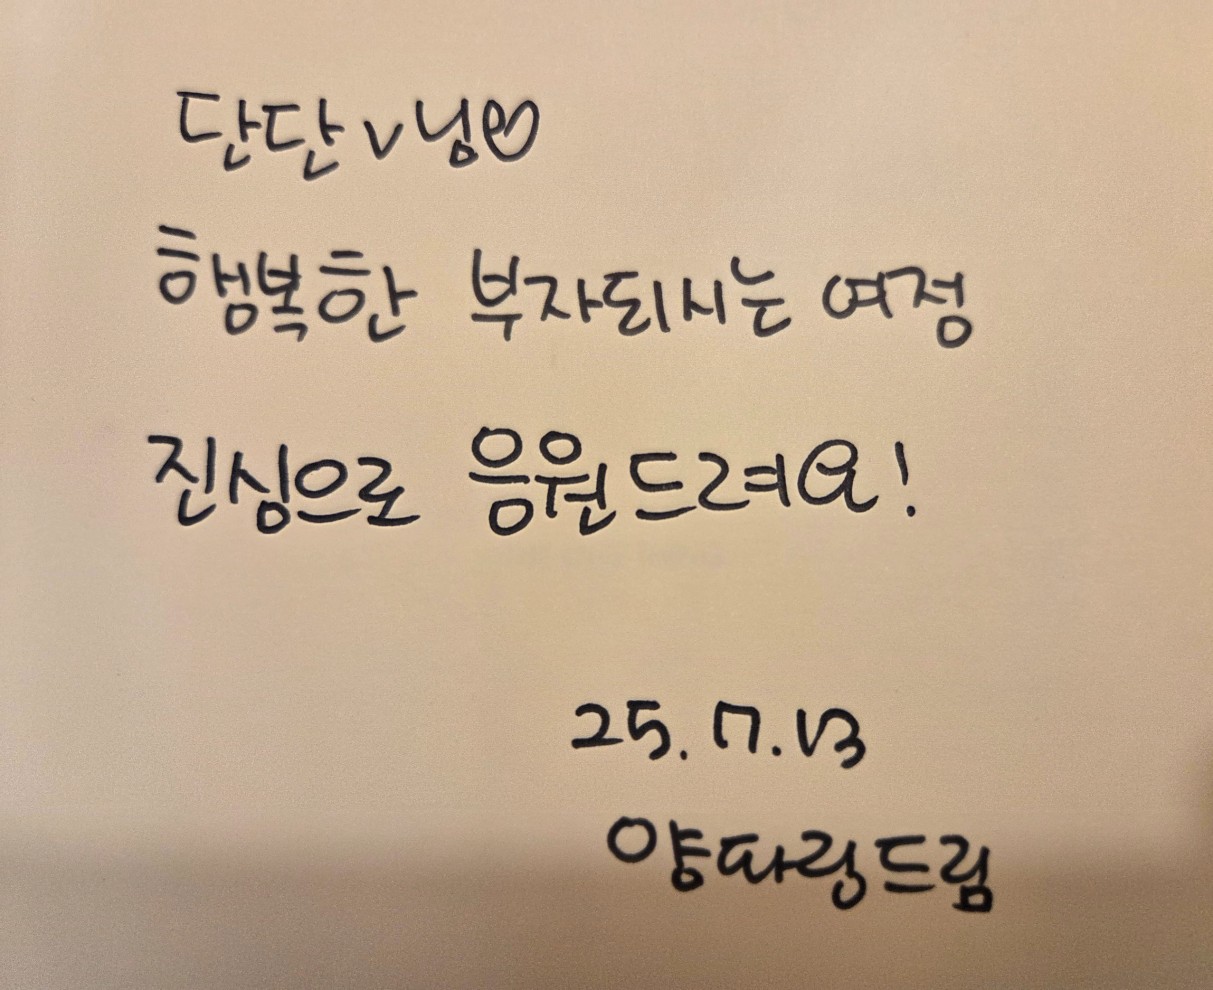 단단v님♡
행복한 부자되시는 여정
진심으로 응원드려요!
25. 7. 13
양파링드림